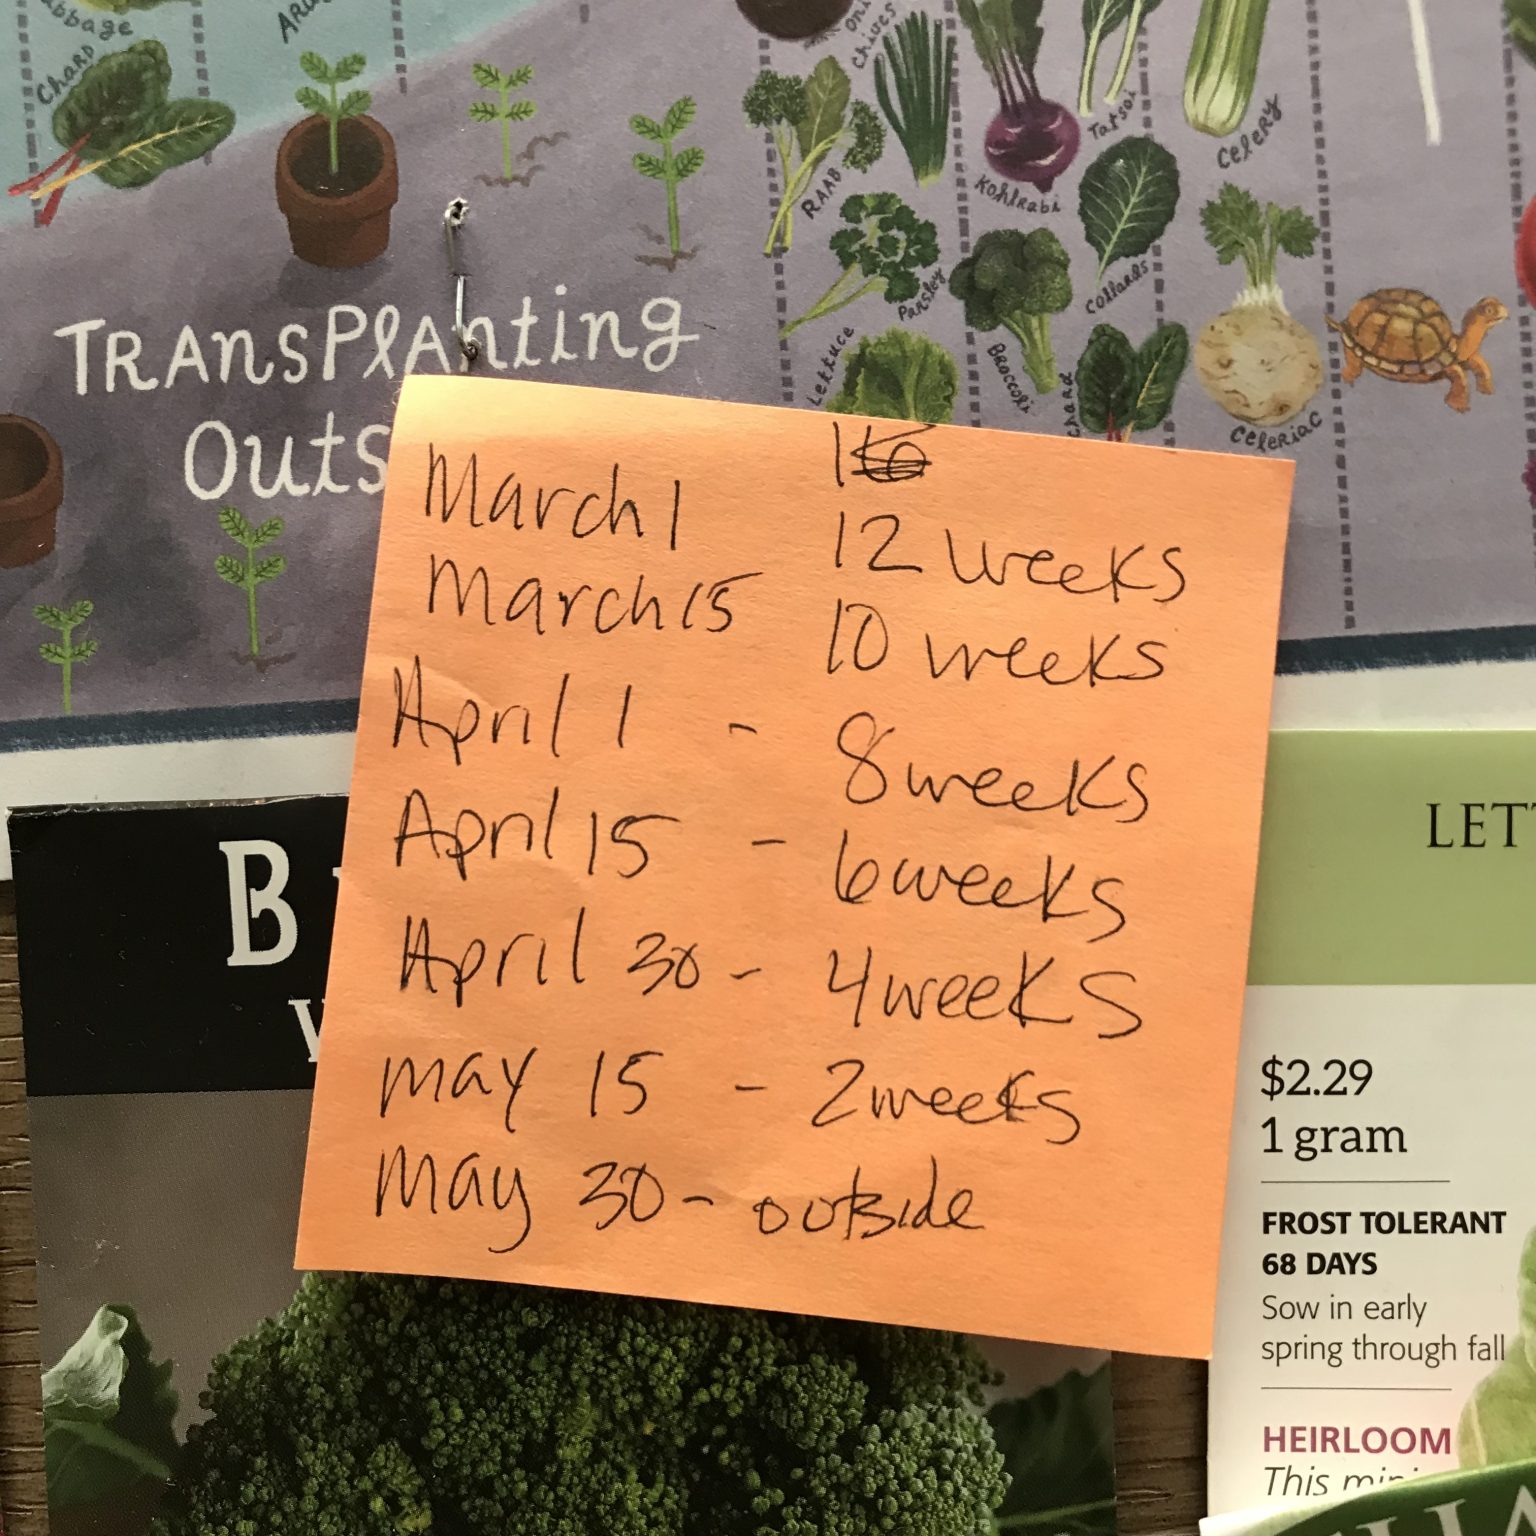 Chard
RAAB
Chives
Kohlrabi
Tatsoi
Celery
Parsley
Collards
Lettuce
Broccoli
Chard
Celeriac
TRANSPlAnting
Outs
March 1
12 weeks
March 15
10 weeks
April 1 - 8 weeks
April 15 - 6 weeks
April 30 - 4 weeks
May 15 - 2 weeks
May 30 - outside
B
LET
$2.29
1 gram
FROST TOLERANT
68 DAYS
Sow in early
spring through fall
HEIRLOOM
This